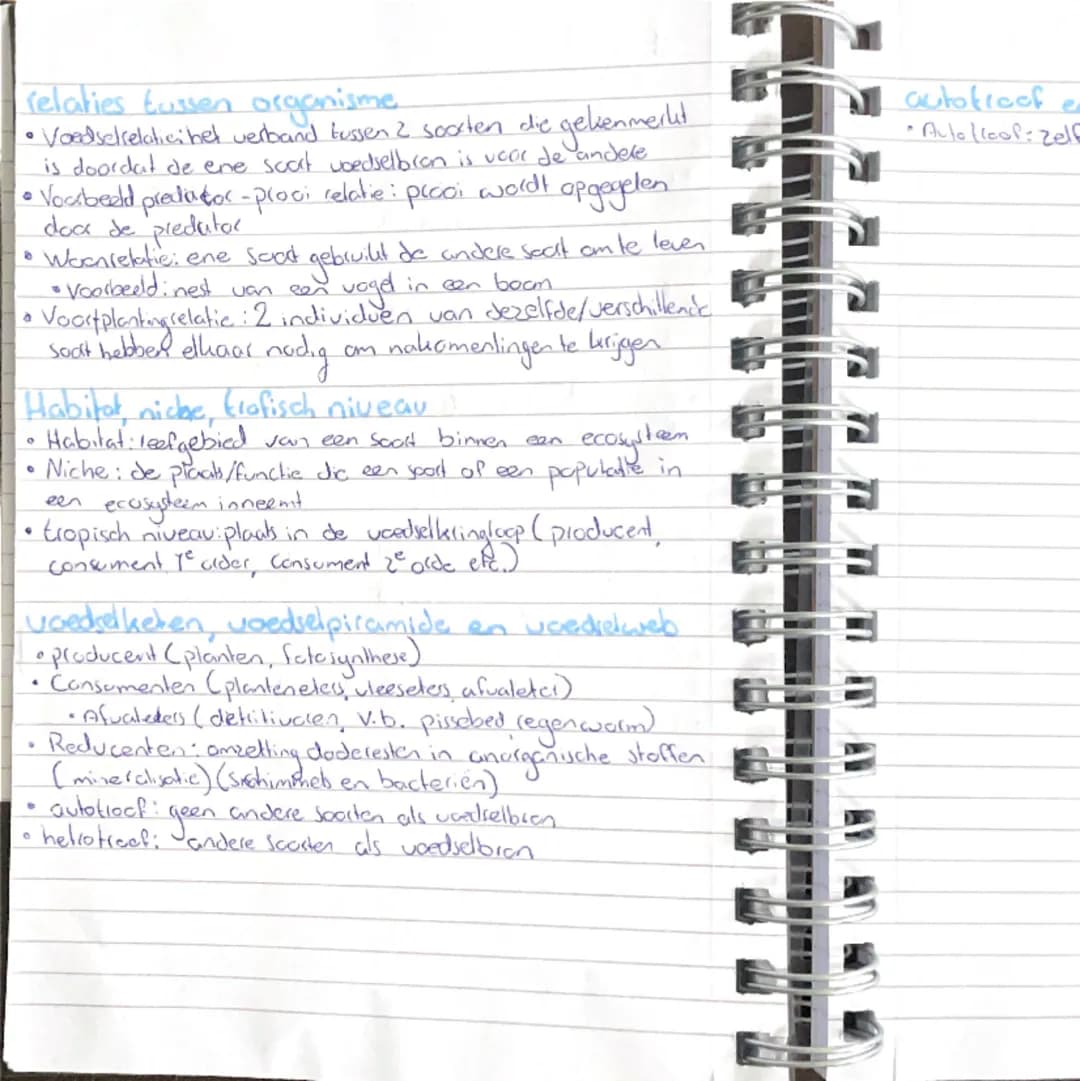 relaties tussen organisme
• Voedselrelatie: het verband tussen 2 soorten die gekenmerkt
is doordat de ene soort voedselbron is voor de andere
• Voorbeeld predator-prooi relatie: prooi wordt opgegeten
door de predator
• Woonrelatie: ene soort gebruikt de andere soort om te leven
• Voorbeeld: nest van een vogel in een boom
• Voortplantingsrelatie: 2 individuen van dezelfde/verschillende
soort hebben elkaar nodig om nakomenlingen te krijgen
Habitat, niche, trofisch niveau
• Habitat: leefgebied van een soort binnen een ecosysteem
• Niche: de plaats/functie die een soort of een populatie in
een ecosysteem inneemt
• tropisch niveau: plaats in de voedselkringloop (producent,
consument 1e order, consument 2e orde etc.)
voedselketen, voedselpiramide en voedselweb
• producent (planten, fotosynthese)
• Consumenten (planteneters, vleeseters, afvaleter)
• Afvaleters (detritivoren, v.b. pissebed, regenworm)
• Reducenten: omzetting dode resten in anorganische stoffen
(mineralisatie) (schimmels en bacteriën)
• autotroof: geen andere soorten als voedselbron
• hetrotroof: andere soorten als voedselbron
autotroof e
• Autotroof: zelf